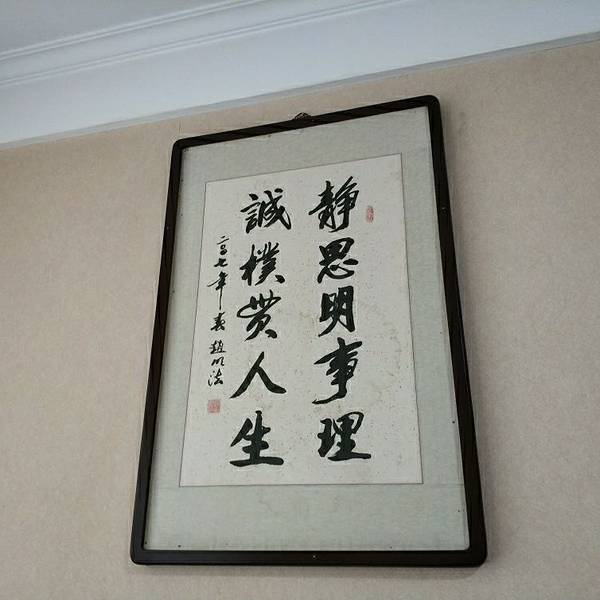 静思明事理
誠樸贯人生
二〇〇七年春 趙明法